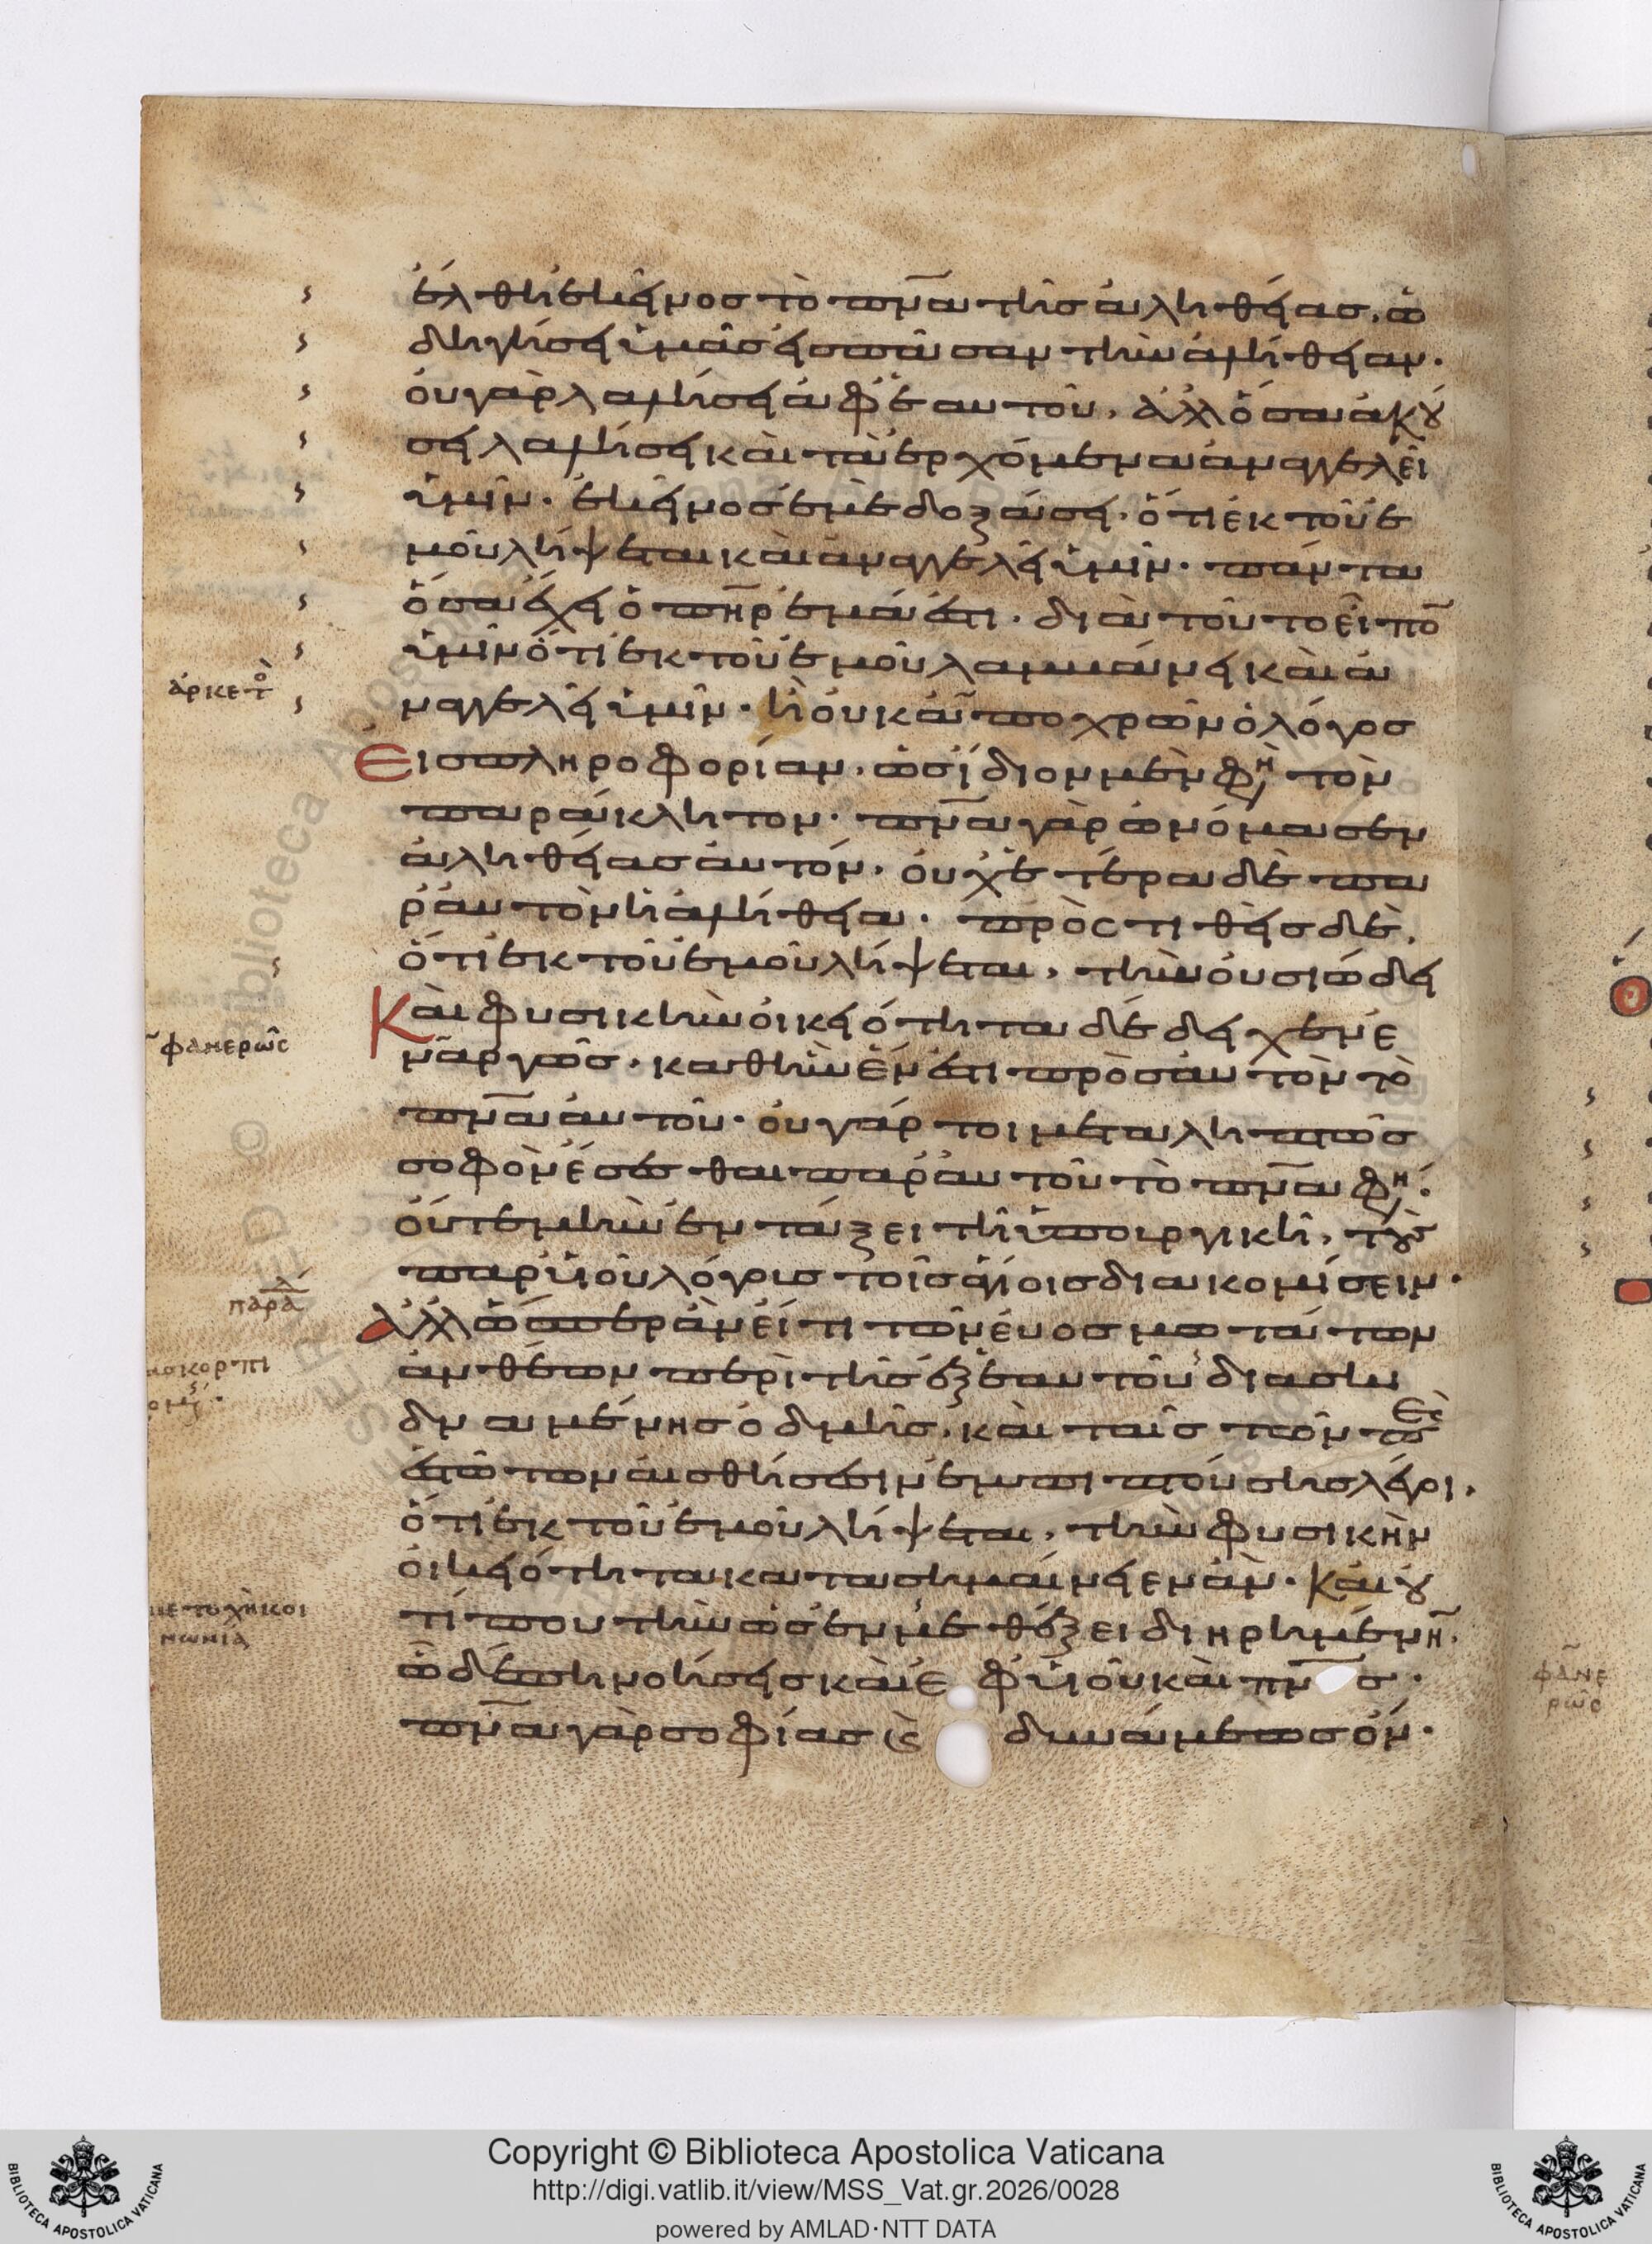 ἔλθη ἐκεῖνος τὸ πνᾶ τῆς ἀληθείας, ὁ
δηγήσει ὑμᾶς εἰς πᾶσαν τὴν ἀλήθειαν·
οὐ γὰρ λαλήσει ἀφ' ἑαυτοῦ, ἀλλ' ὅσα ἀκού
σει λαλήσει καὶ τὰ ἐρχόμενα ἀναγγελεῖ
ὑμῖν· ἐκεῖνος ἐμὲ δοξάσει· ὅτι ἐκ τοῦ ἐ
μοῦ λήψεται καὶ ἀναγγελεῖ ὑμῖν· πάντα
ὅσα ἔχει ὁ πηρ ἐμά ἐστι· διὰ τοῦτο εἶπο
ὑμῖν ὅτι ἐκ τοῦ ἐμοῦ λαμβάνει καὶ ἀ
ναγγελεῖ ὑμῖν· ἢ οὐκ ἂν ἀποχρῶν ὁ λόγος
εἰς πληροφορίαν, ὡς ἴδιον μὲν φη τὸν
παράκλητον· πνᾶ γὰρ ὠνόμασεν
ἀληθείας αὐτόν, οὐχ ἑτέρα δὲ πα
ρ' αὐτὸν ἡ ἀλήθεια· προστιθεὶς δὲ,
ὅτι ἐκ τοῦ ἐμοῦ λήψεται, τὴν οὐσιώδη
καὶ φυσικὴν οἰκειότητα δέδειχεν ἐ
ναργῶς· καθ' ἣν ἕν ἐστι πρὸς αὐτὸν τὸ
πνᾶ αὐτοῦ· οὐ γάρ τοι μεταληπτῶς
σοφὸν ἔσεσθαι παρ' αὐτοῦ τὸ πνᾶ φη·
οὔτε μὴν ἐν τάξει τῇ ὑπουργικῇ, τοὺς
παρ' υἱοῦ λόγους τοῖς ἁγίοις διακομίσειν·
ἀλλ' ὥσπερ ἂν εἴ τι τῶν εὐοσμωτάτων
ἀνθέων περὶ τῆς ἐξ ἑαυτοῦ διασκι
δναμένης ὀδμῆς, καὶ ταῖς τῶν πε
στώτων αἰσθήσεσιν ἐμπιπτούσης λέγοι,
ὅτι ἐκ τοῦ ἐμοῦ λήψεται, τὴν φυσικὴν
οἰκειότητα κατασημαίνει ἐν ἂν· καὶ οὔ
τί που τὴν ὡς ἐν μεθέξει διηρημένην·
ὧδέ πη νοήσεις καὶ ἐφ' υἱοῦ καὶ πνς·
πνᾶ γὰρ σοφίας καὶ δυνάμεως ὄν·
ἀρκετὸ
φανερῶς
παρὰ
φανερῶς
Copyright © Biblioteca Apostolica Vaticana
http://digi.vatlib.it/view/MSS_Vat.gr.2026/0028
powered by AMLAD·NTT DATA
BIBLIOTECA APOSTOLICA VATICANA
BIBLIOTECA APOSTOLICA VATICANA